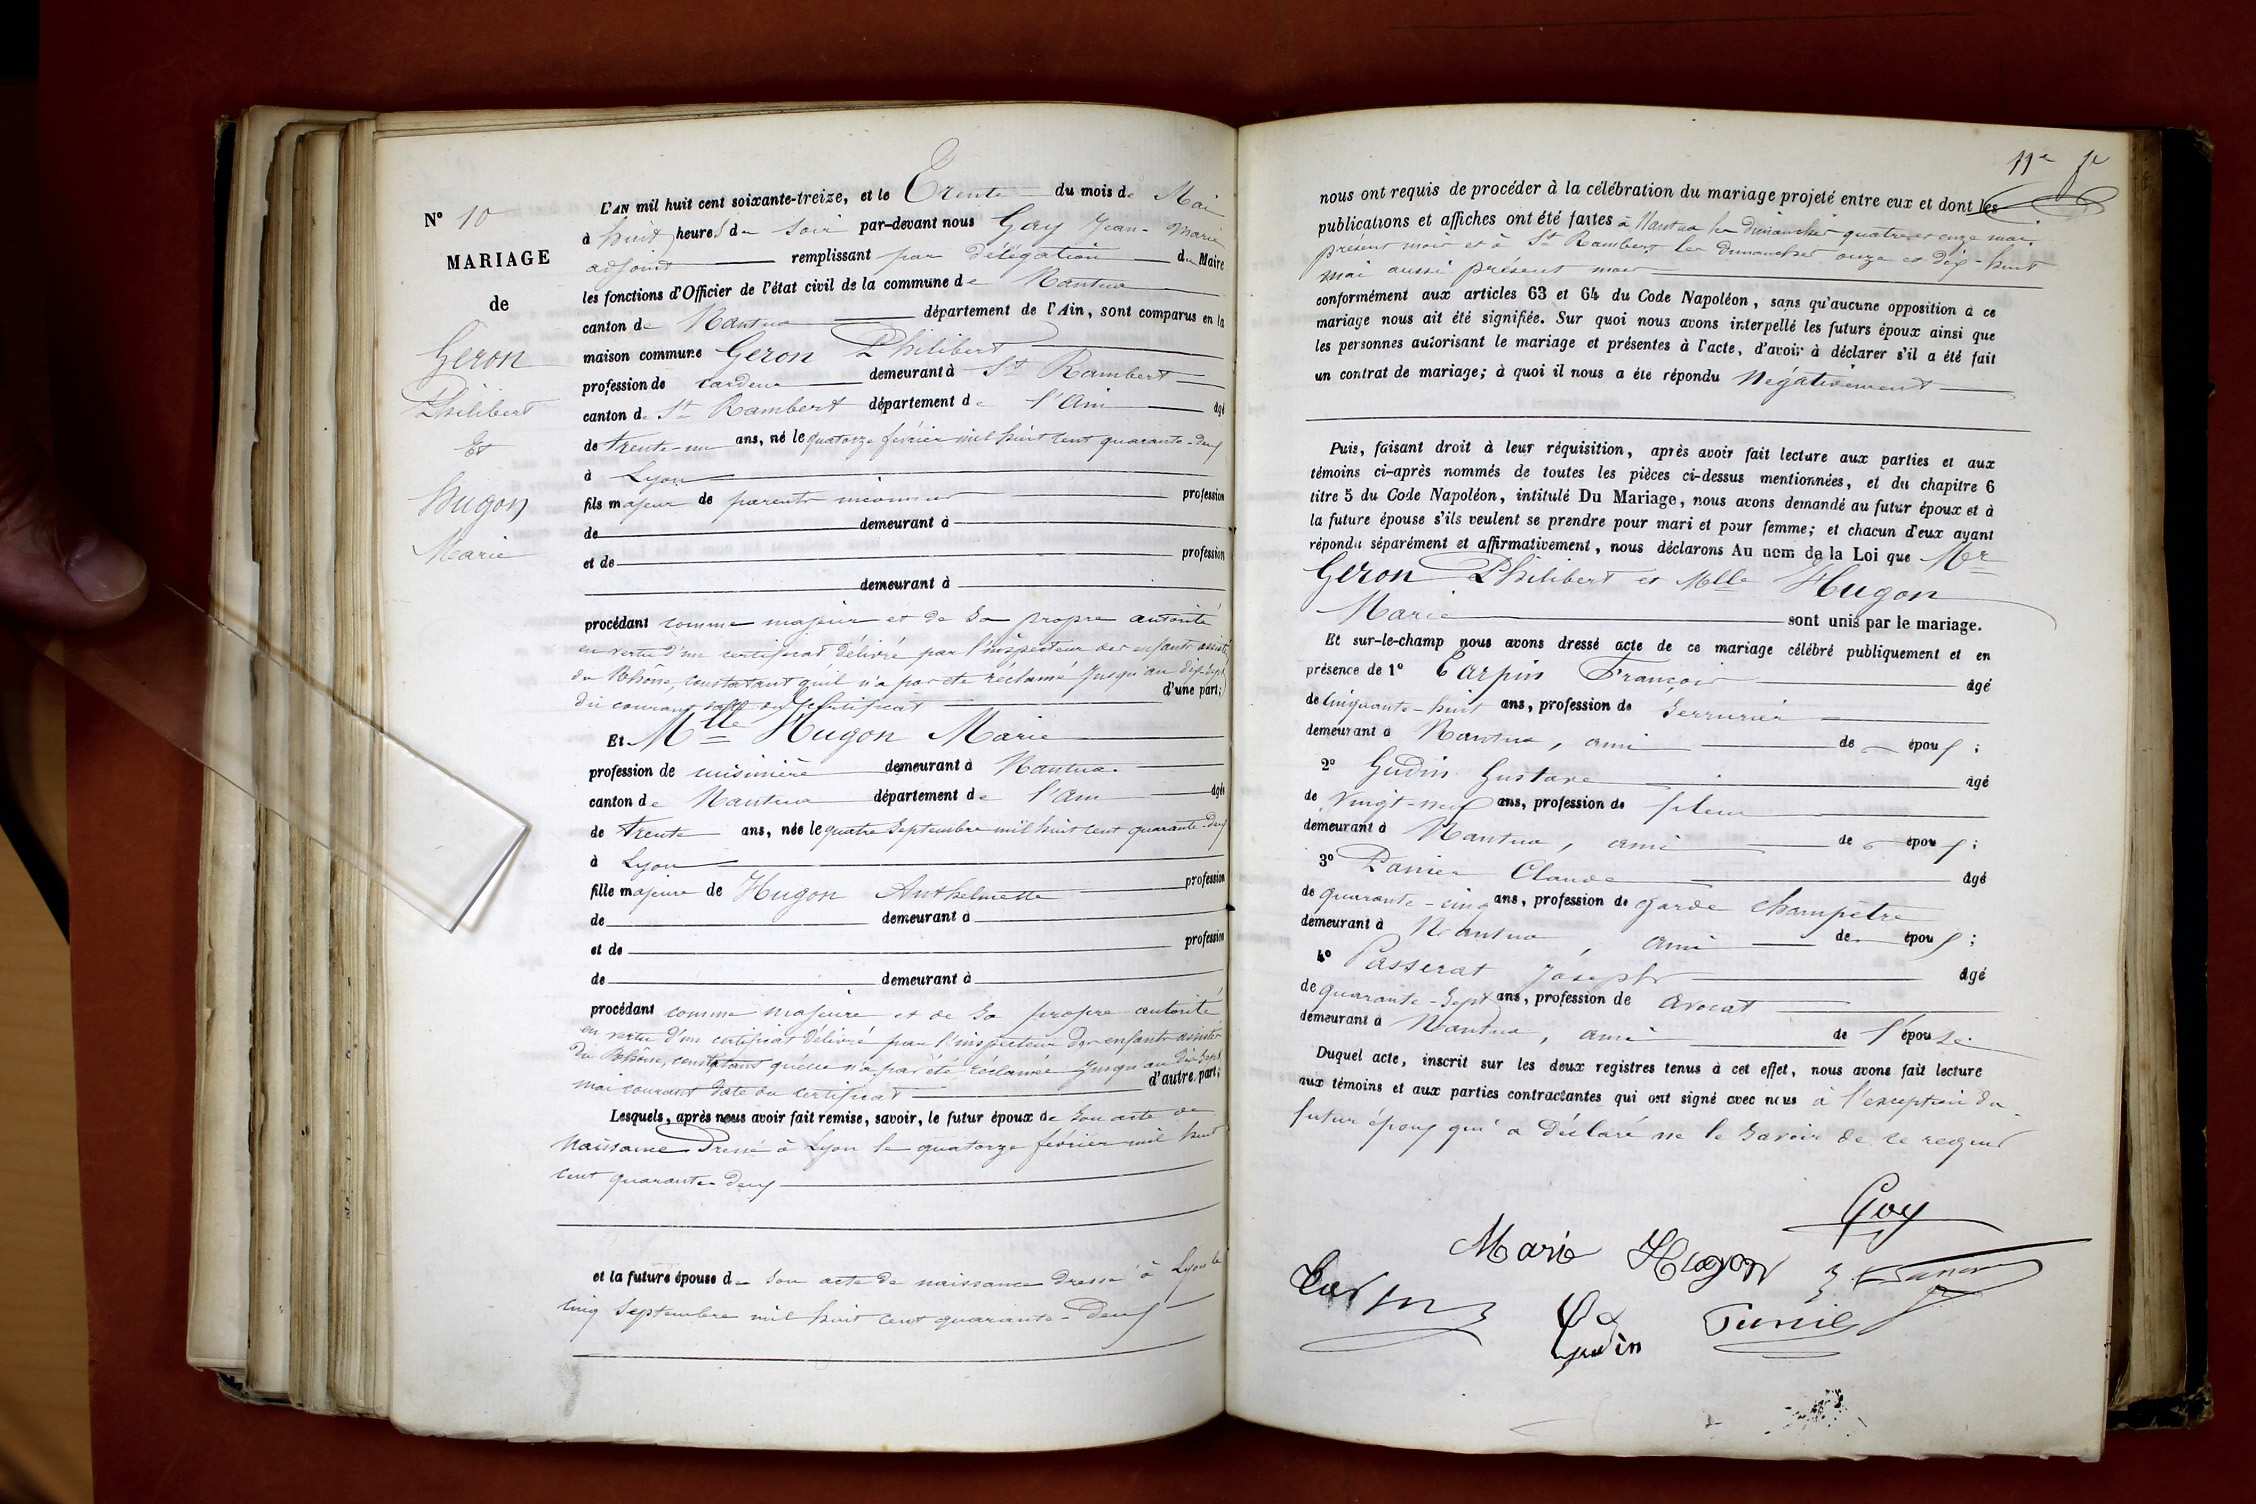 N° 10
MARIAGE
de
Geron
Philibert
Et
Hugon
Marie
L'AN mil huit cent soixante-treize, et le Trente du mois de Mai
à huit heures du soir par-devant nous Gay Jean-Marie
adjoint remplissant par délégation du Maire
les fonctions d'Officier de l'état civil de la commune de Nantua
canton de Nantua département de l'Ain, sont comparus en la
maison commune Geron Philibert
profession de cardeur demeurant à St Rambert
canton de St Rambert département de l'Ain âgé
de trente-un ans, né le quatorze février mil huit cent quarante-deux
à Lyon
fils majeur de parents inconnus profession
de demeurant à
et de profession
demeurant à
procédant comme majeur et de sa propre autorité
en vertu d'un certificat délivré par l'inspecteur des enfants assistés
du Rhône, constatant qu'il n'a pas été réclamé jusqu'au dix-sept
du courant date du certificat d'une part;
Et Mlle Hugon Marie
profession de cuisinière demeurant à Nantua
canton de Nantua département de l'Ain âgée
de trente ans, née le quatre septembre mil huit cent quarante-deux
à Lyon
fille majeure de Hugon Anthelmette profession
de demeurant à
et de profession
de demeurant à
procédant comme majeure et de sa propre autorité
en vertu d'un certificat délivré par l'inspecteur des enfants assistés
du Rhône, constatant qu'elle n'a pas été réclamée jusqu'au dix-sept
mai courant date du certificat d'autre part;
Lesquels, après nous avoir fait remise, savoir, le futur époux de son acte de
naissance dressé à Lyon le quatorze février mil huit
cent quarante-deux
et la future épouse de son acte de naissance dressé à Lyon le
cinq septembre mil huit cent quarante-deux
11e
nous ont requis de procéder à la célébration du mariage projeté entre eux et dont les
publications et affiches ont été faites à Nantua les dimanches quatre et onze mai
présent mois et à St Rambert les dimanches onze et dix-huit
mai aussi présent mois
conformément aux articles 63 et 64 du Code Napoléon, sans qu'aucune opposition à ce
mariage nous ait été signifiée. Sur quoi nous avons interpellé les futurs époux ainsi que
les personnes autorisant le mariage et présentes à l'acte, d'avoir à déclarer s'il a été fait
un contrat de mariage; à quoi il nous a été répondu Négativement
Puis, faisant droit à leur réquisition, après avoir fait lecture aux parties et aux
témoins ci-après nommés de toutes les pièces ci-dessus mentionnées, et du chapitre 6
titre 5 du Code Napoléon, intitulé Du Mariage, nous avons demandé au futur époux et à
la future épouse s'ils veulent se prendre pour mari et pour femme; et chacun d'eux ayant
répondu séparément et affirmativement, nous déclarons Au nom de la Loi que Mr
Geron Philibert et Melle Hugon
Marie sont unis par le mariage.
Et sur-le-champ nous avons dressé acte de ce mariage célébré publiquement et en
présence de 1° Carpin François âgé
de cinquante-huit ans, profession de serrurier
demeurant à Nantua, ami de époux;
2° Gudin Gustave âgé
de vingt-neuf ans, profession de fileur
demeurant à Nantua, ami de époux;
3° Panier Claude âgé
de quarante-cinq ans, profession de garde champêtre
demeurant à Nantua, ami de époux;
4° Passerat Joseph âgé
de quarante-sept ans, profession de avocat
demeurant à Nantua, ami de l'épouse.
Duquel acte, inscrit sur les deux registres tenus à cet effet, nous avons fait lecture
aux témoins et aux parties contractantes qui ont signé avec nous à l'exception du
futur époux qui a déclaré ne le savoir de ce requis
Gay
Marie Hugon
Gudin